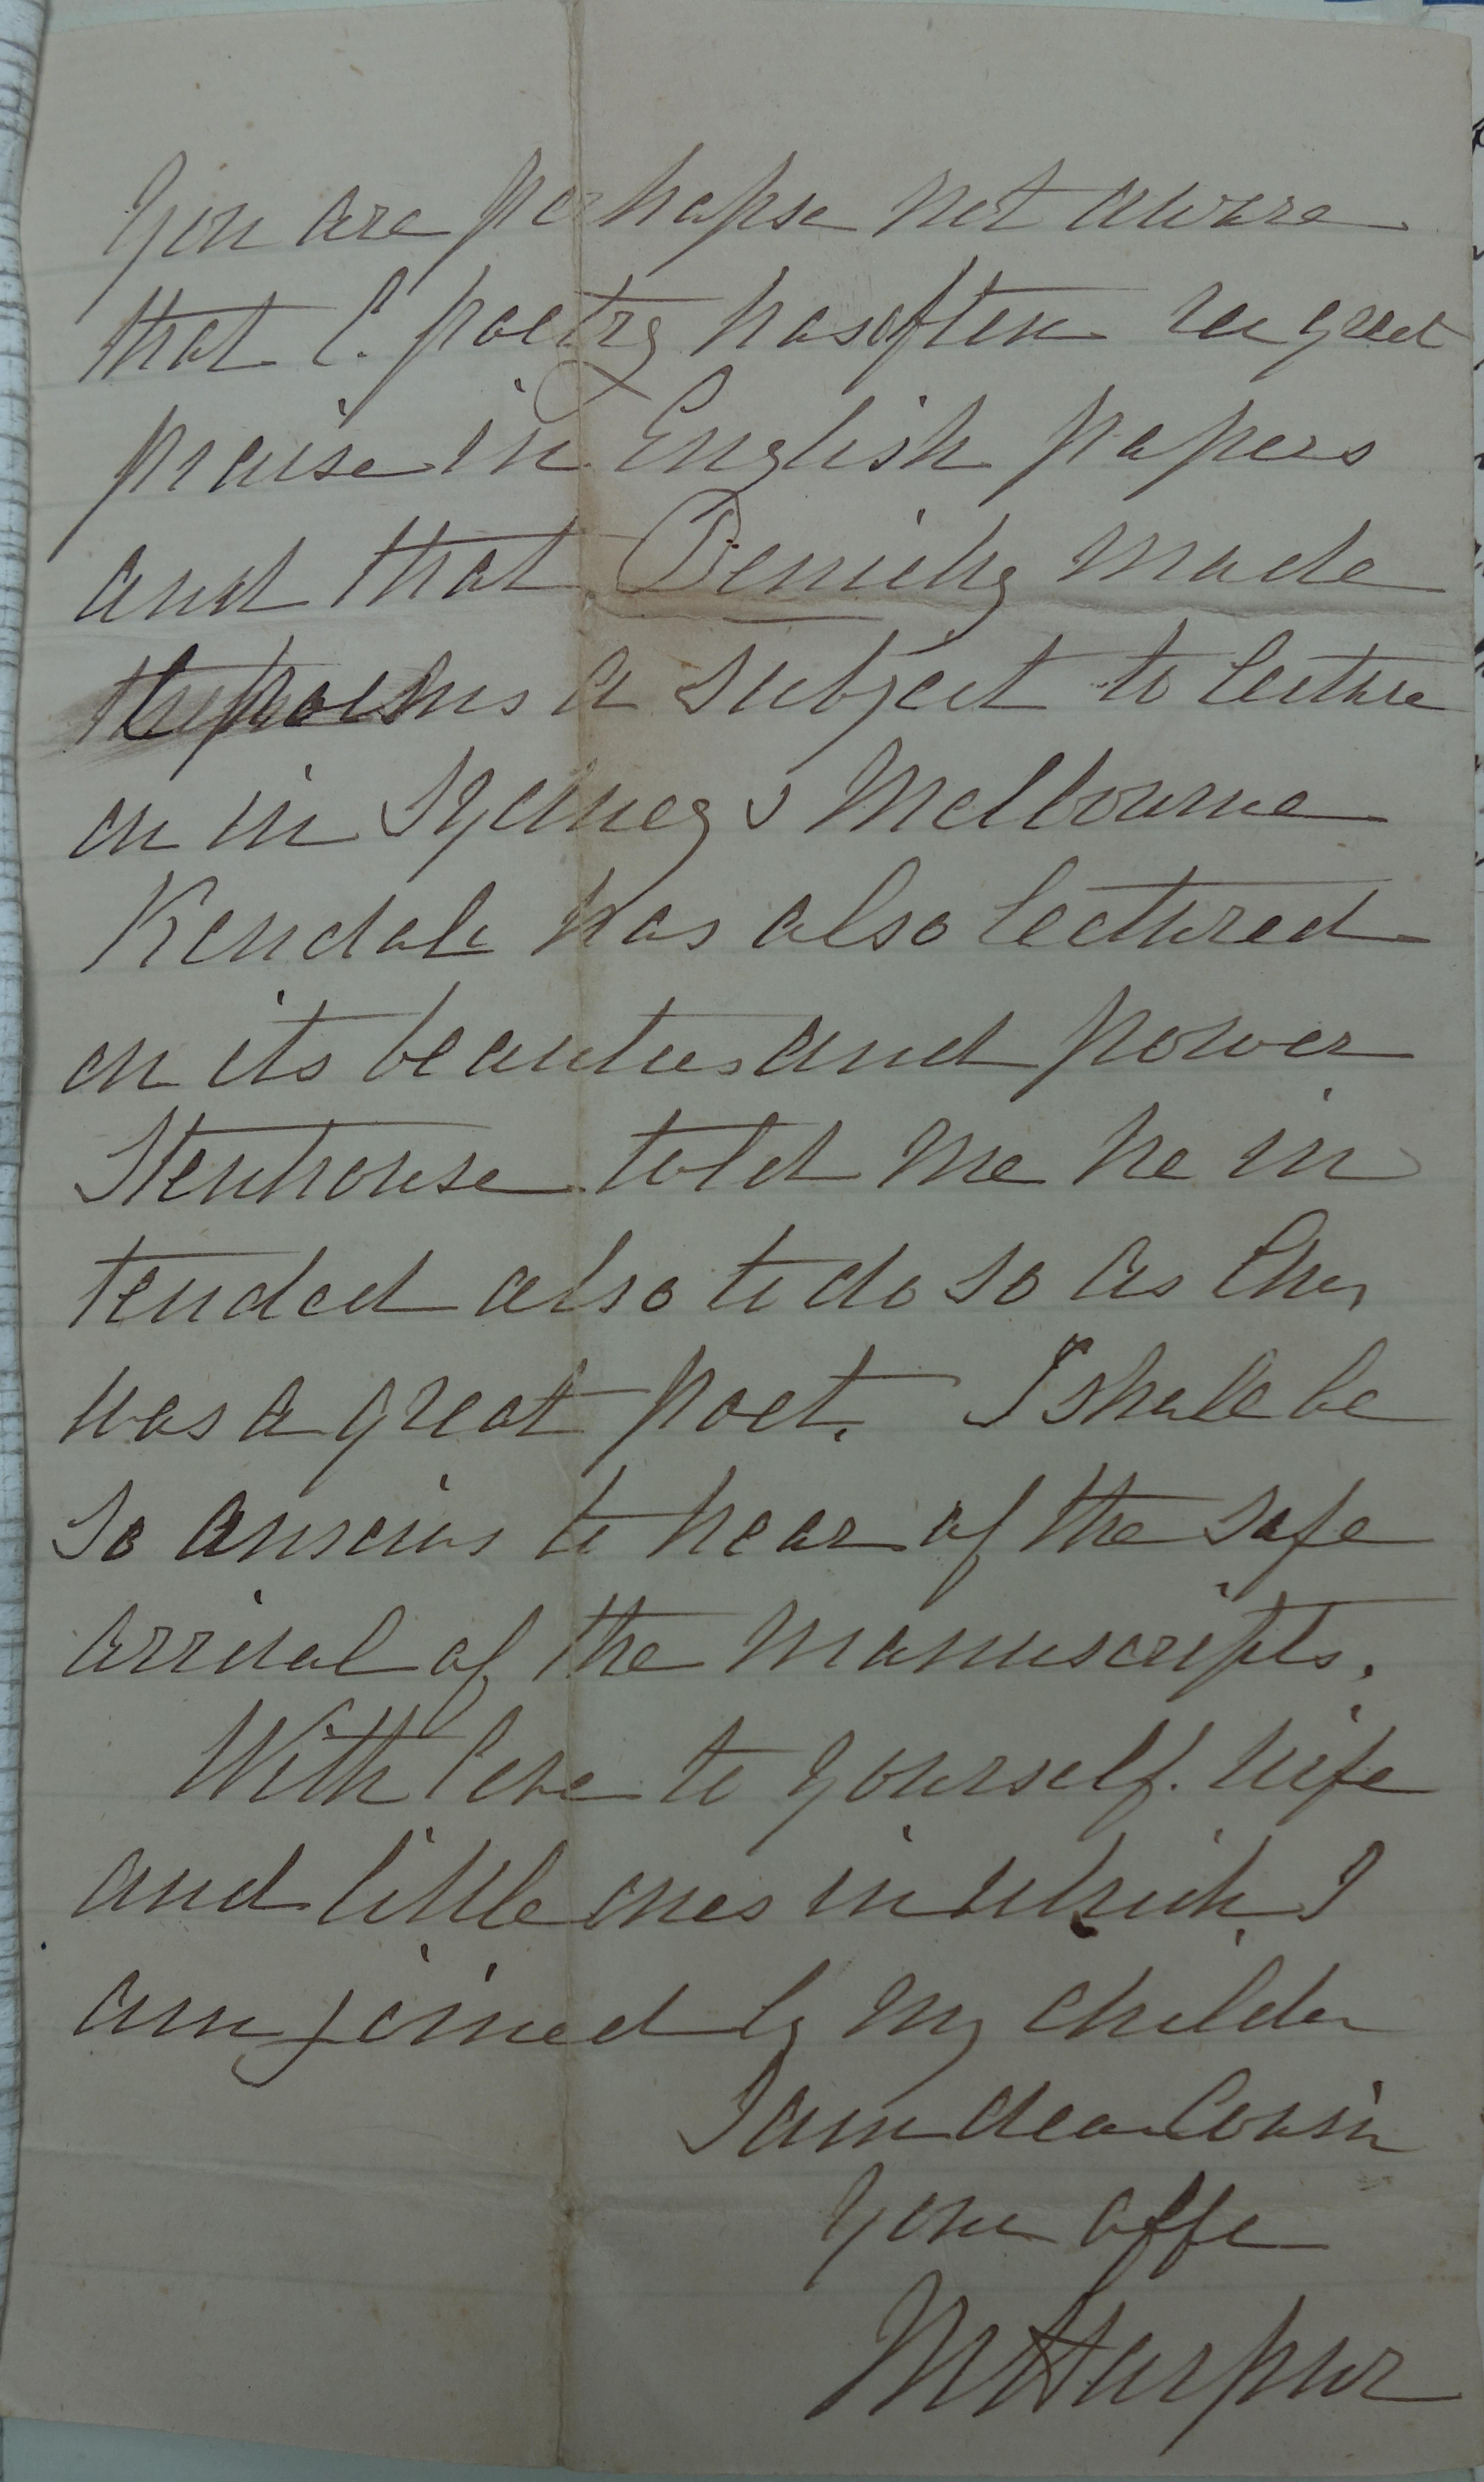 You are perhapse not aware
that C. poetry has often
praise in English papers
and that Deniehy made
the poems a subject to lecture
on in Sydney & Melbourne
Kendall has also lectured
on its beauties and power
Stenhouse told me he in
tended also to do so as Chas
was a great poet. I shall be
so anscius to hear of the safe
arrival of the manuscripts.
With love to yourself. wife
and little ones in which I
am joined by my childen
I am dear Cousin
Your affe
M Harpur